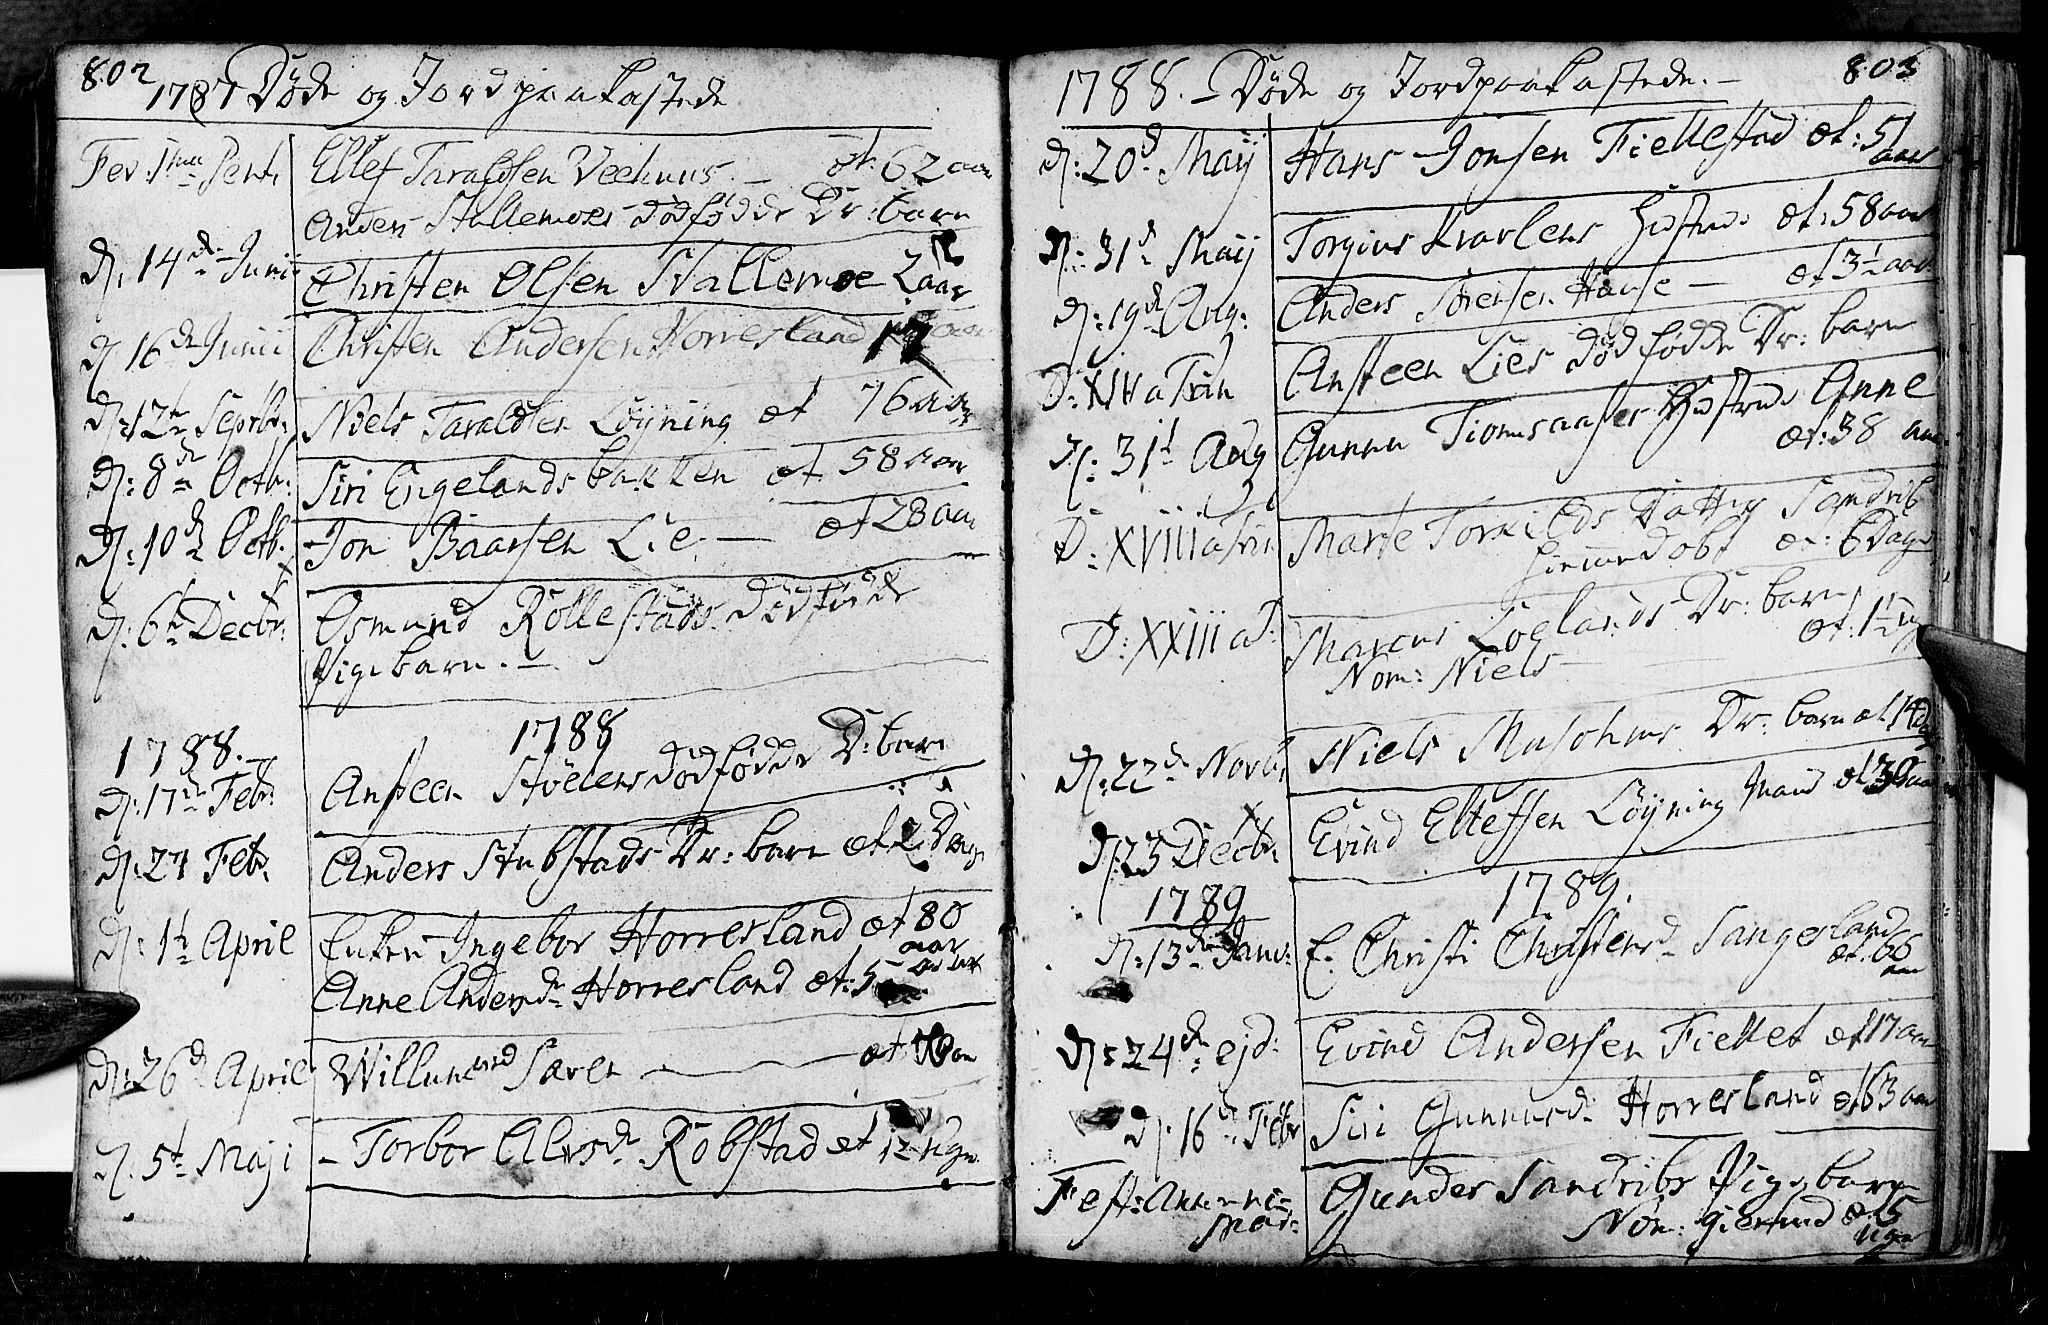 802
1787 Døde og Jordpaakastede
Fer. 1ma Pent. Ellef Taraldsen Veehuus. — æt. 62 aar
Anders Stallemoes dødfødde Dr: barn
d. 14de Junii Christen Olsen Stallemoe 2 aar
d. 16de Junii Christen Andersen Horresland 17
d. 12te Septbr: Niels Taraldsen Løyning æt 76 aar
d: 8de Octb: Siri Engelandsbakken æt 58 aar
d: 10de Octb. Jon Baarsen Lie. — æt 28 aar
d: 6te Decbr: Osmund Røllestads dødfødde
Pigebarn. —
1788. 1788
d: 17de Febr: Ansteen Støelens dødfødde D: barn
d: 27 Febr. Anders Stubstads Dr: barn æt 2 Dage
d: 1te April Enken Ingebor Horresland æt 80
aar
Anne Andersd. Horresland æt: 5
d: 26de April Willum Saren — æt
d. 5te Maji – Torbor Alersd. Robstad æt 12 uger
803
1788. — Døde og Jordpaakastede. —
d: 20de Maij Hans Jonsen Fiellestad æt: 51
aar
d: 31te Maij Torgius Kvarlens Hustrue æt: 58 aar
d: 19de Aug: Anders Sørensen — æt 3 1/2 aar
D: XIV a Trin Ansteen Lies dødfødde Dr: barn
d: 31te Aug Gunnu Tiomsaases Hustrue Anne
æt: 38 aar
D: XVIII a Trin Marte Torkilds Datter Sandrib
hiemmedøbt æt: 6 Dage
D: XXIII a T: Marcus Loelands Dr: barn
æt: 1 1/2
Nom: Niels
d: 22de Novb. Niels Dr: barn æt. 14 d
d: 23 Decbr. Evind Ellefsen Løyning
1789 1789.
d: 13de Janu: E. Christi Christensd. Sangesland
æt. 66
aar
d: 24de ejd: Evind Andersen Fiellet æt 17 aar
d. 16de Febr Siri Gunnusd. Horresland æt 63 aar
Fest: Annunci-
Mar: Gunder Sandribs Pigebarn
Nom: Gierund æt 5
uger